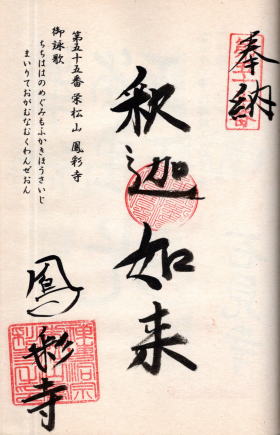 奉納
釈迦如来
鳳彩寺
第五十五番 栄松山 鳳彩寺
御詠歌
ちちははのめぐみもふかきほうさいじ
まいりておがむなむくわんぜおん